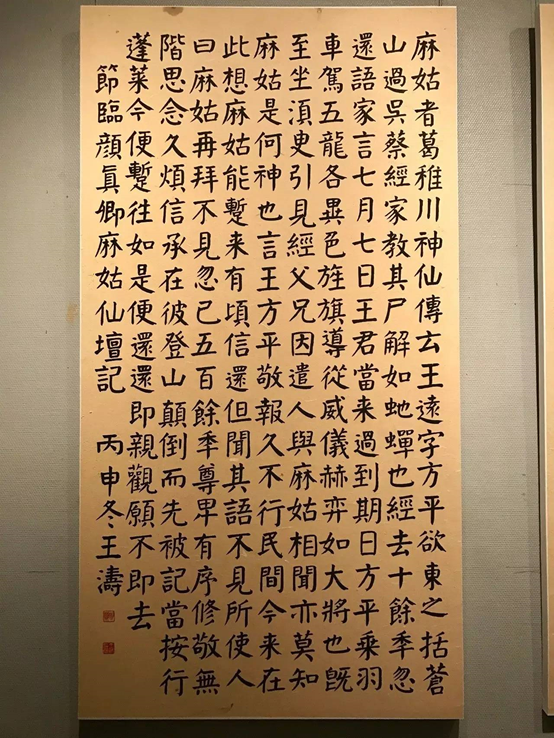 麻姑者葛稚川神仙傳云王遠字方平欲東之括蒼
山過吳蔡經家教其尸解如虵蟬也經去十餘年忽
還語家言七月七日王君當来過到期日方平乗羽
車駕五龍各異色旌旗導從威儀赫弈如大將也旣
至坐湏臾引見經父兄因遣人與麻姑相聞亦莫知
麻姑是何神也言王方平敬報久不行民間今来在
此想麻姑能蹔来有頃信還但聞其語不見所使人
曰麻姑再拜不見忽已五百餘年尊卑有序修敬無
階思念久煩信承在彼登山顛倒而先被記當按行
蓬莱今便蹔往如是便還還即親觀願不即去
節臨顔真卿麻姑仙壇記 丙申冬王濤